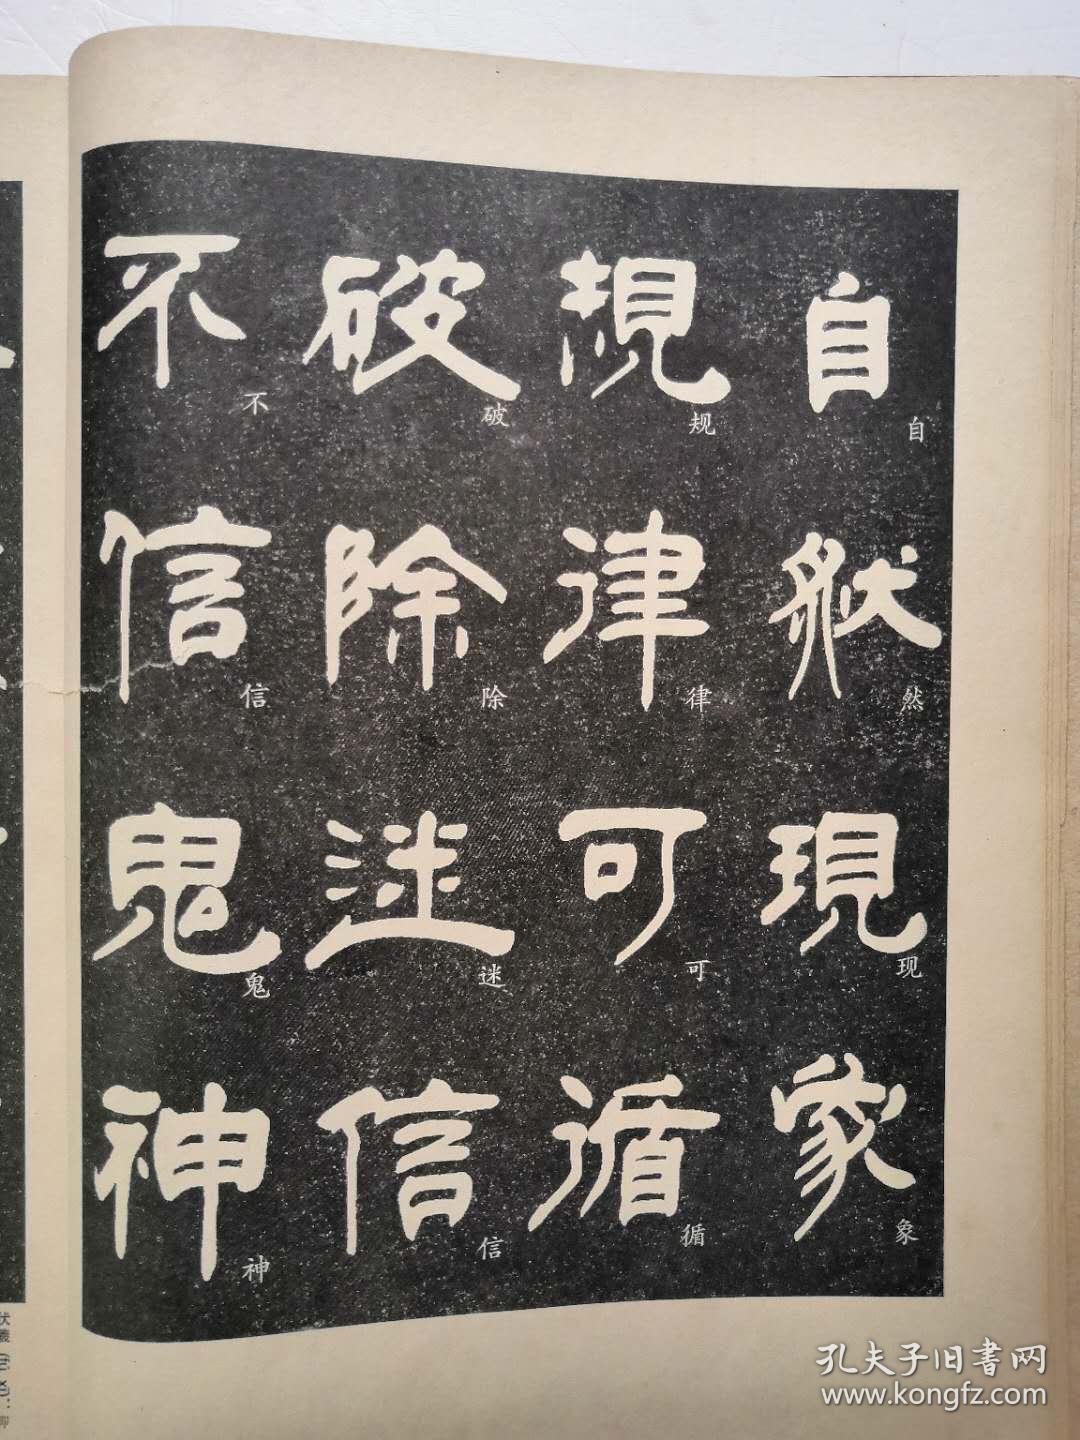 自然現象
規律可循
破除迷信
不信鬼神
自
然
现
象
规
律
可
循
破
除
迷
信
不
信
鬼
神
孔夫子旧書网
www.kongfz.com